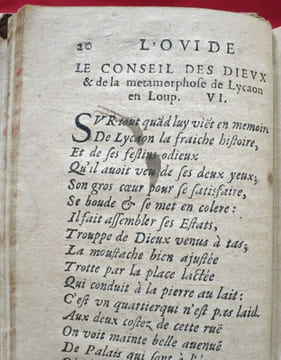 20 L'OVIDE
LE CONSEIL DES DIEVX
& de la metamorphose de Lycaon
en Loup. VI.
SVR tout quãd luy viẽt en memoire
De Lycaon la fraiche histoire,
Et de ses festins odieux
Qu'il auoit veu de ses deux yeux;
Son gros cœur pour se satisfaire,
Se boude & se met en colere:
Il fait assembler ses Estats,
Trouppe de Dieux venus à tas;
La moustache bien ajustée
Trotte par la place lactée
Qui conduit à la pierre au lait:
C'est vn quartier qui n'est pas laid.
Aux deux costez de cette ruë
On voit mainte belle auenuë
De Palais qui sont à l'